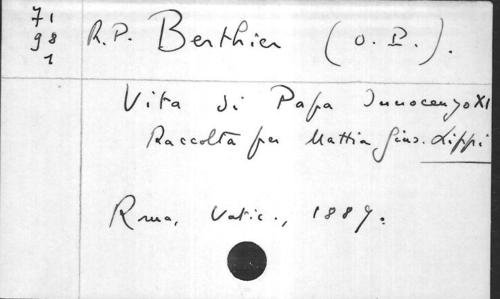 71
98
1
R.P. Berthier (O.P.).
Vita di Papa Innocenzo XI
Raccolta per Mattia Gius. Lippi
Roma, Vatic., 1889.